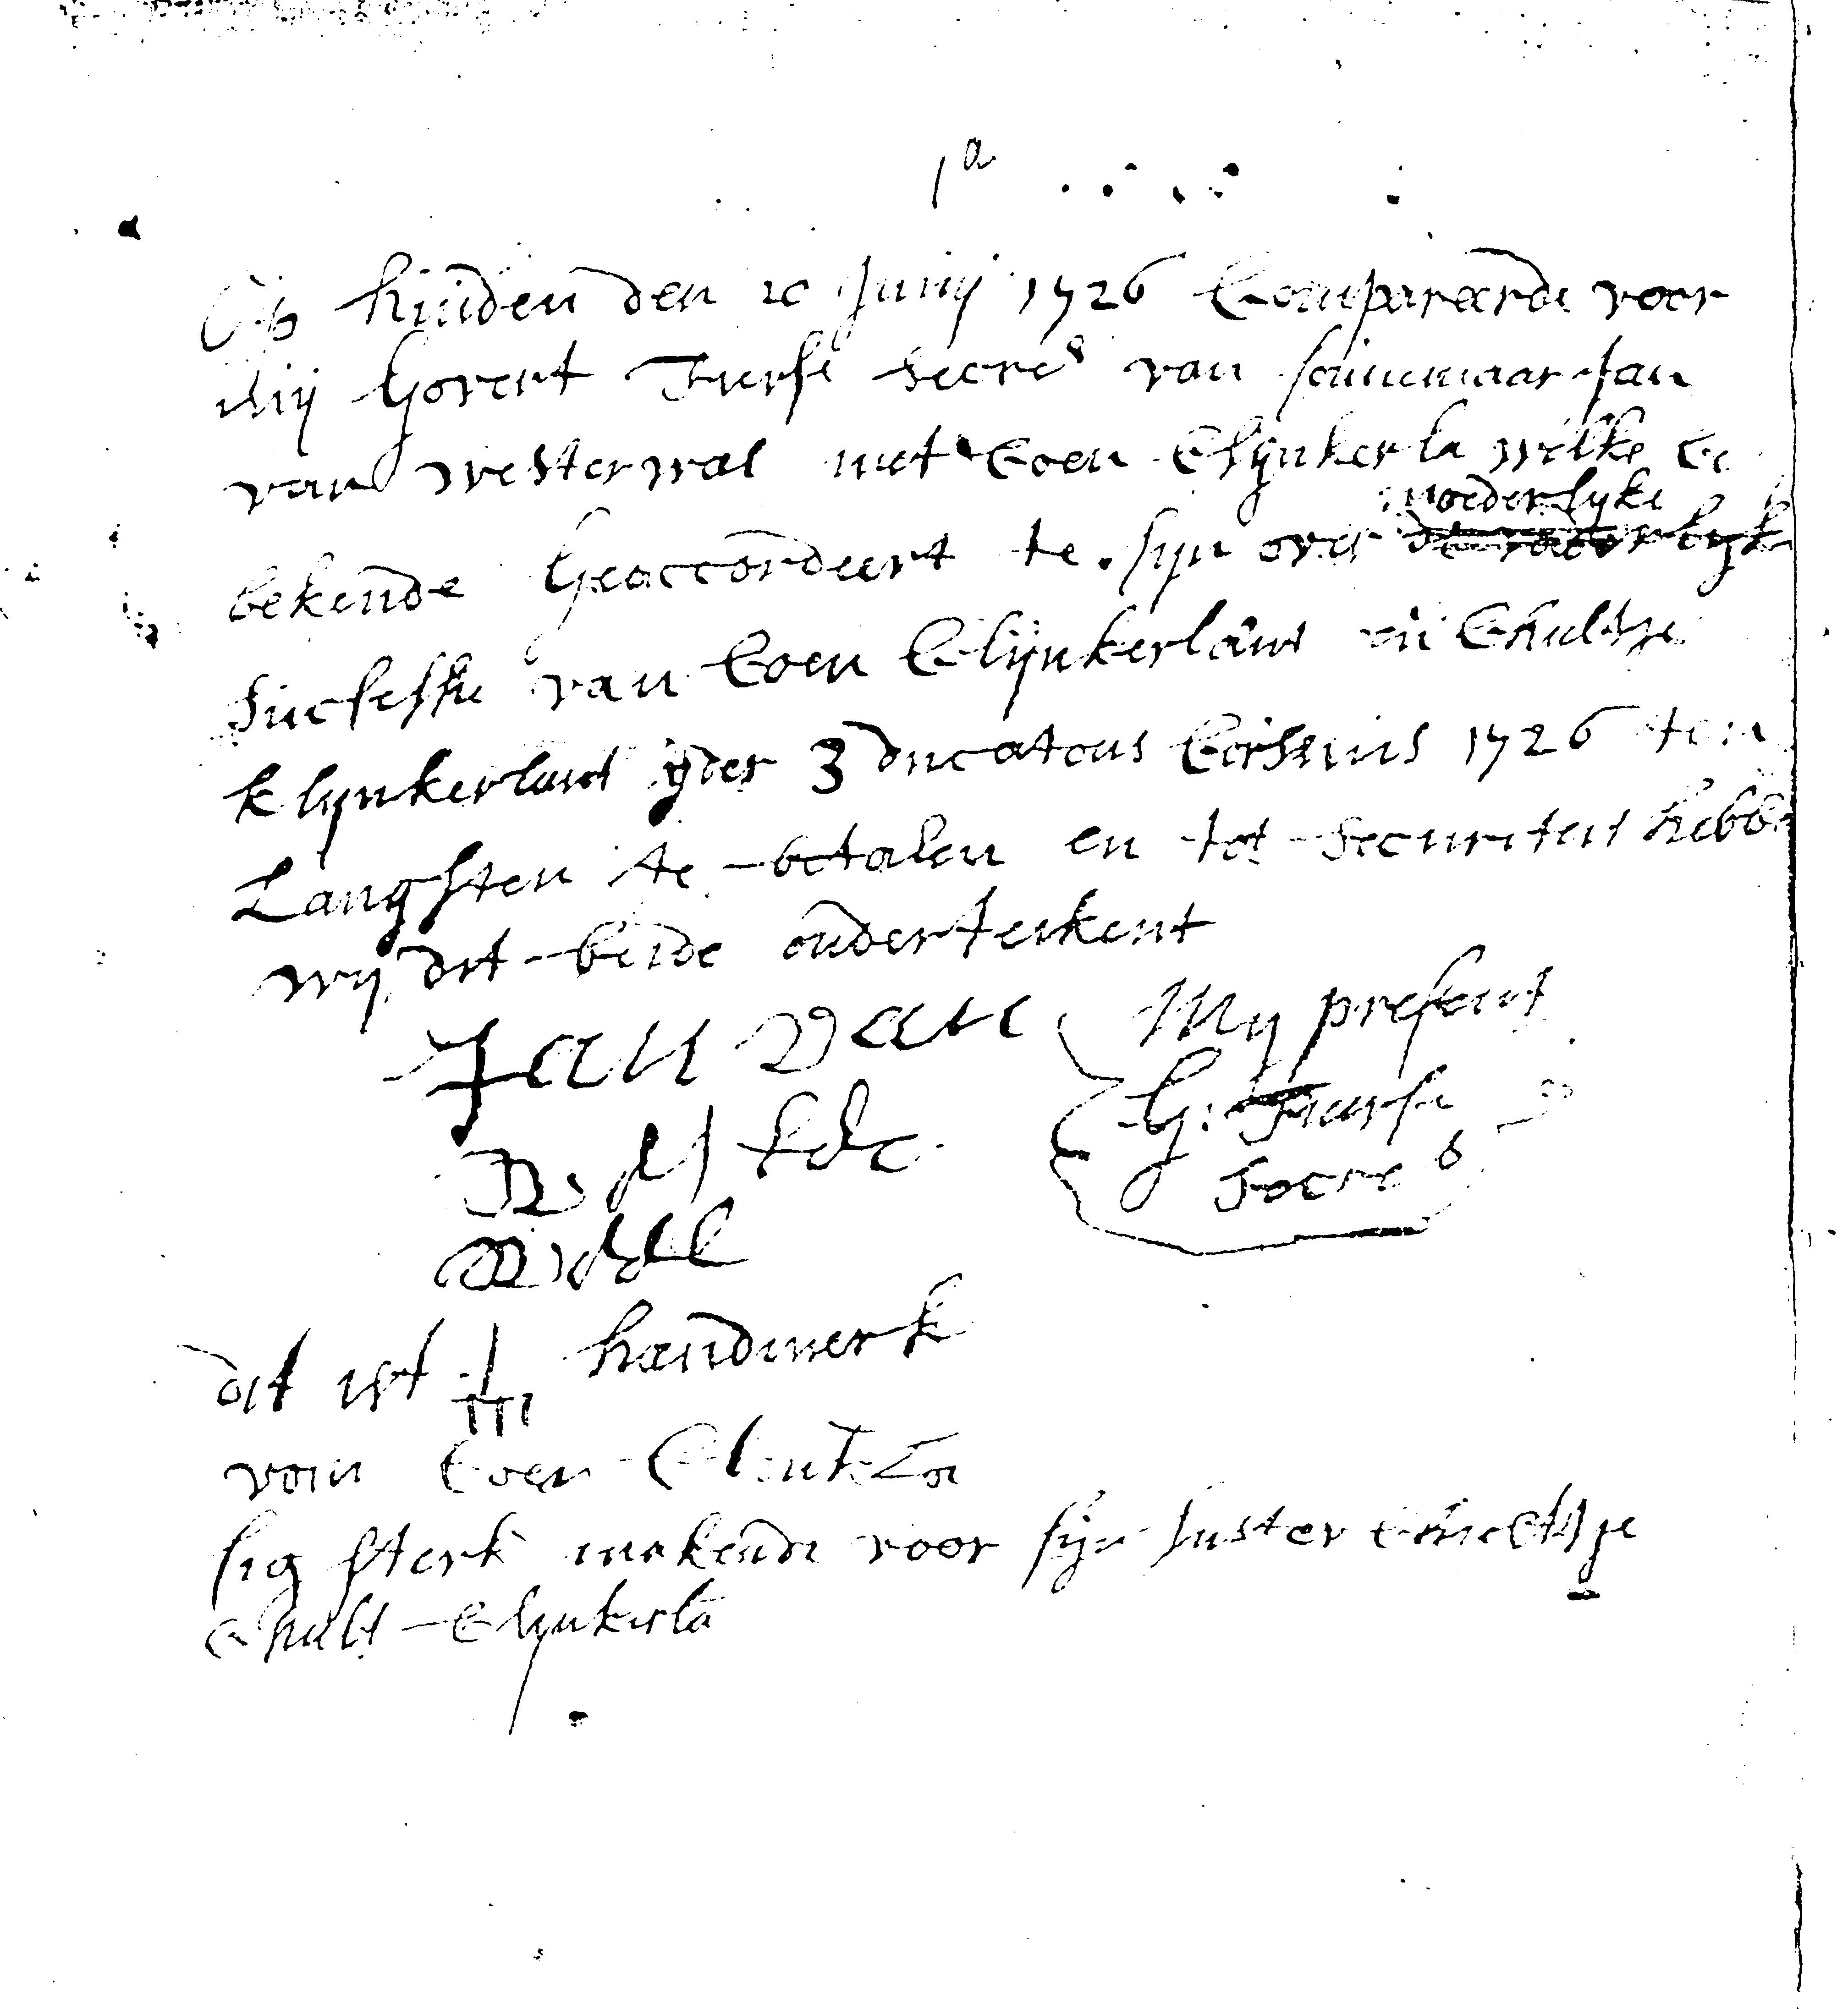 1a
Op huijden den 20 Junij 1726 Compareerde voor
mij Govert Turfs Secrs van Sommaar Jan
van Westerwal met Coen Clijnkerla welke
bekende Geaccordeert te sijn over moederlijke
Sucsessie van Coen Clijnkerlant en Chultje
klijnkerlant ijder 3 ducatons Corsemis 1726 ten
Langhsten te betalen en tot Securiteit hebbe
wij dit beide onderteikent
Jan van
Mij present
G: Turfs
Secrs
dit ist handmerk
van Coen
sig sterk makende voor sijn suster
Chult Clijnkerla